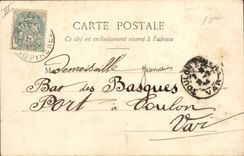 CARTE POSTALE
Ce côté est exclusivement réservé à l'adresse
Mademoiselle
Bar des Basques
Port à Toulon
Var